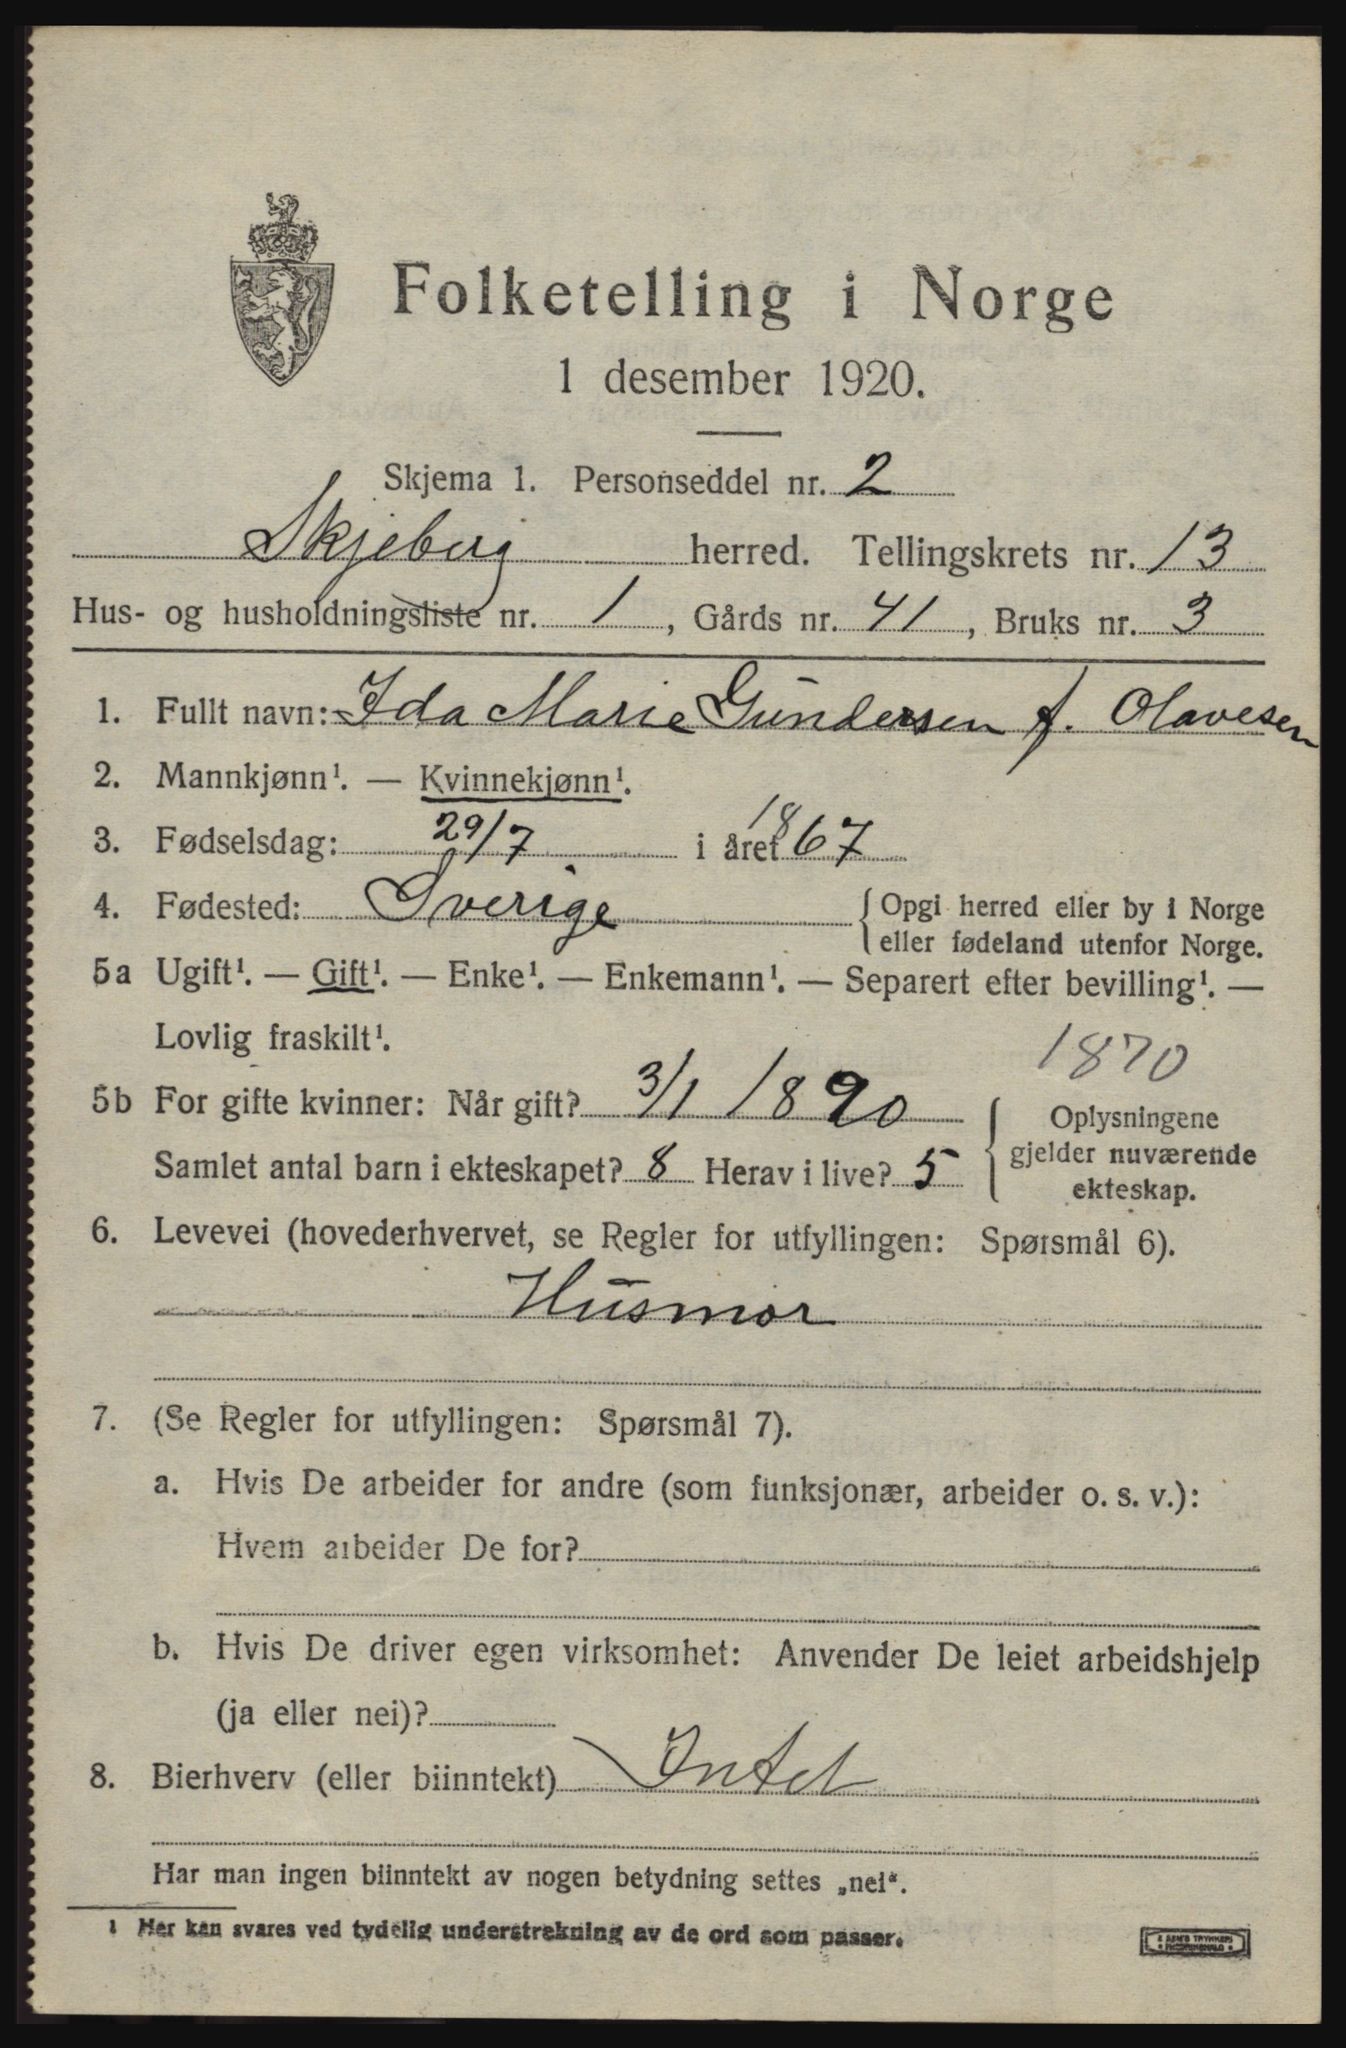 Folketelling i Norge
1 desember 1920.
Skjema 1. Personseddel nr. 2
Skjeberg herred. Tellingskrets nr. 13
Hus- og husholdningsliste nr. 1, Gårds nr. 41, Bruks nr. 3
1. Fullt navn: Ida Marie Gundersen f. Olavesen
2. Mannkjønn¹. — Kvinnekjønn¹.
3. Fødselsdag: 29/7 i året 1867
4. Fødested: Sverige { Opgi herred eller by i Norge
eller fødeland utenfor Norge.
5a Ugift¹. — Gift¹. — Enke¹. — Enkemann¹. — Separert efter bevilling¹. —
Lovlig fraskilt¹.
1870
5b For gifte kvinner: Når gift? 3/1 1890
Samlet antal barn i ekteskapet? 8 Herav i live? 5
{ Oplysningene
gjelder nuværende
ekteskap.
6. Levevei (hovederhvervet, se Regler for utfyllingen: Spørsmål 6).
Husmor
7. (Se Regler for utfyllingen: Spørsmål 7).
a. Hvis De arbeider for andre (som funksjonær, arbeider o. s. v.):
Hvem arbeider De for?
b. Hvis De driver egen virksomhet: Anvender De leiet arbeidshjelp
(ja eller nei)?
8. Bierhverv (eller biinntekt) Intet
Har man ingen biinntekt av nogen betydning settes „nei“.
¹ Her kan svares ved tydelig understrekning av de ord som passer.